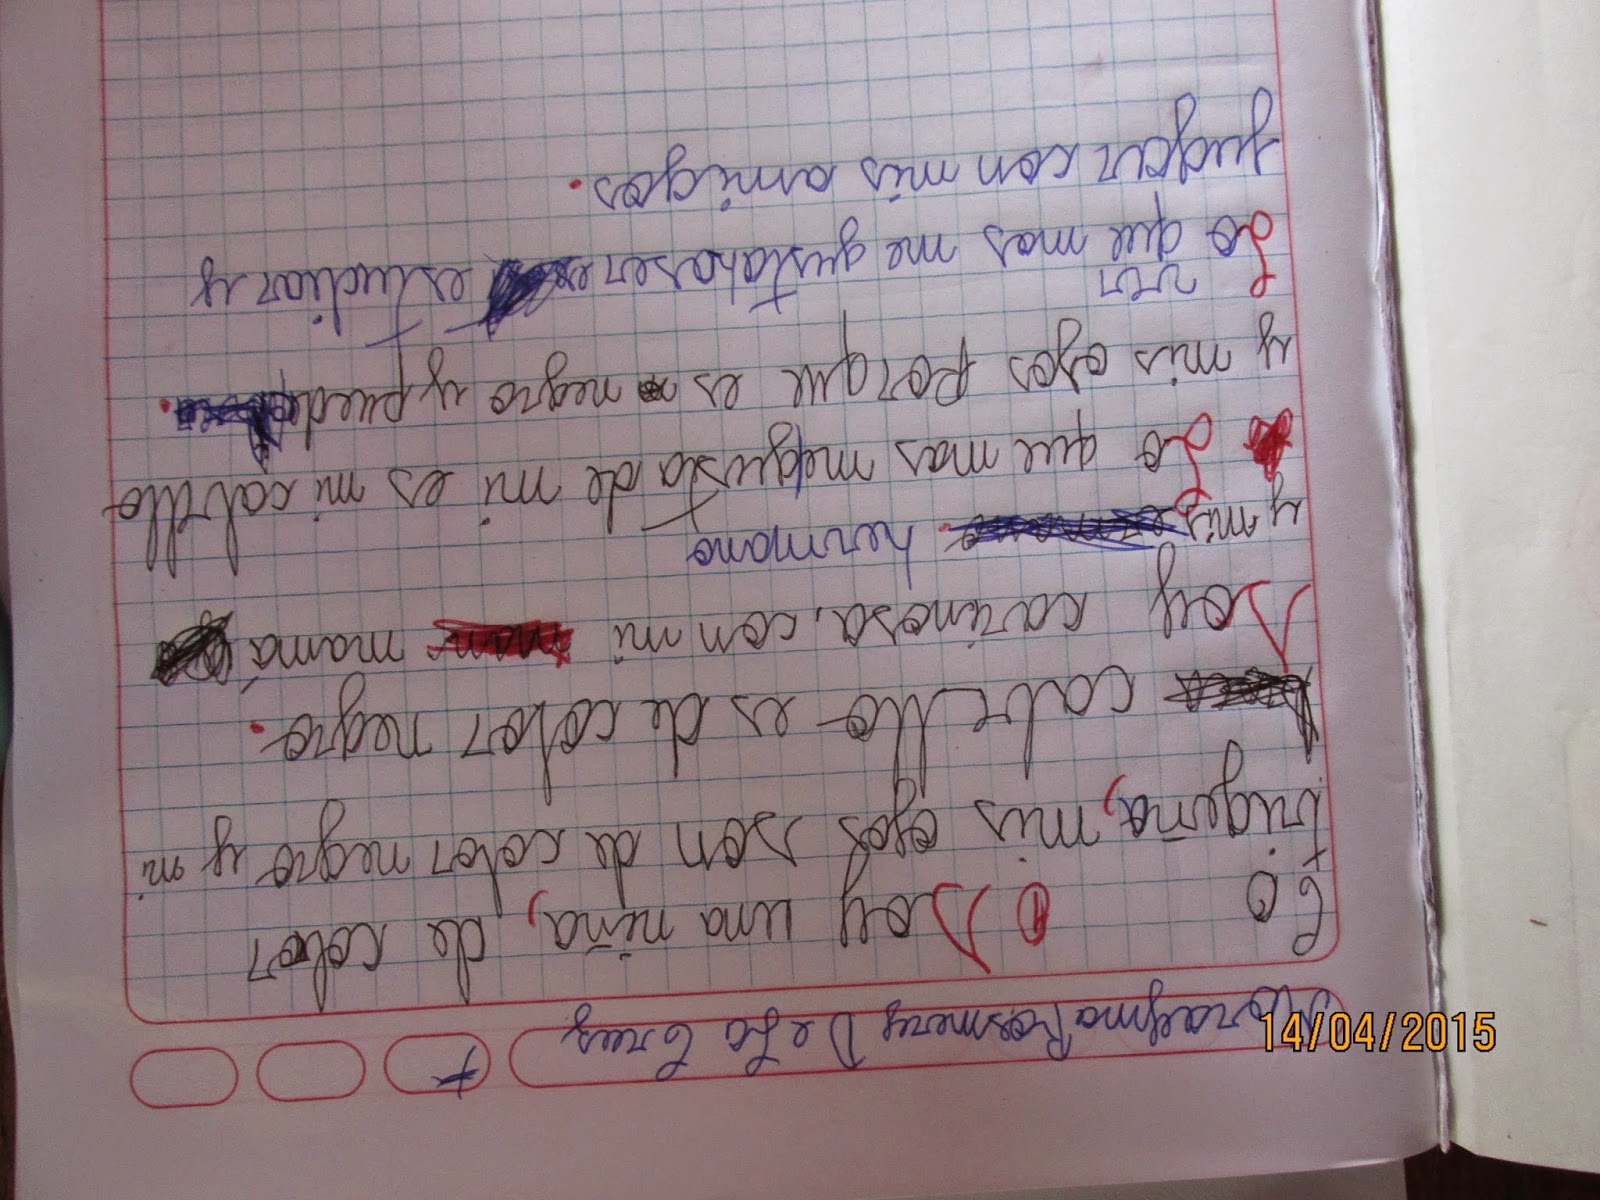 Rosmery De La Cruz
Soy una niña, de color
trigeña, mis ojos son de color negro y mi
cabello es de color negro.
Soy cariñosa, con mi mamá
y mis hermano
Lo que mas megusta de mi es mi cabello
y mis ojos porque es negro y puedo
ver
Lo que mas me gustahaser estudiar y
jugar con mis amigos.
14/04/2015